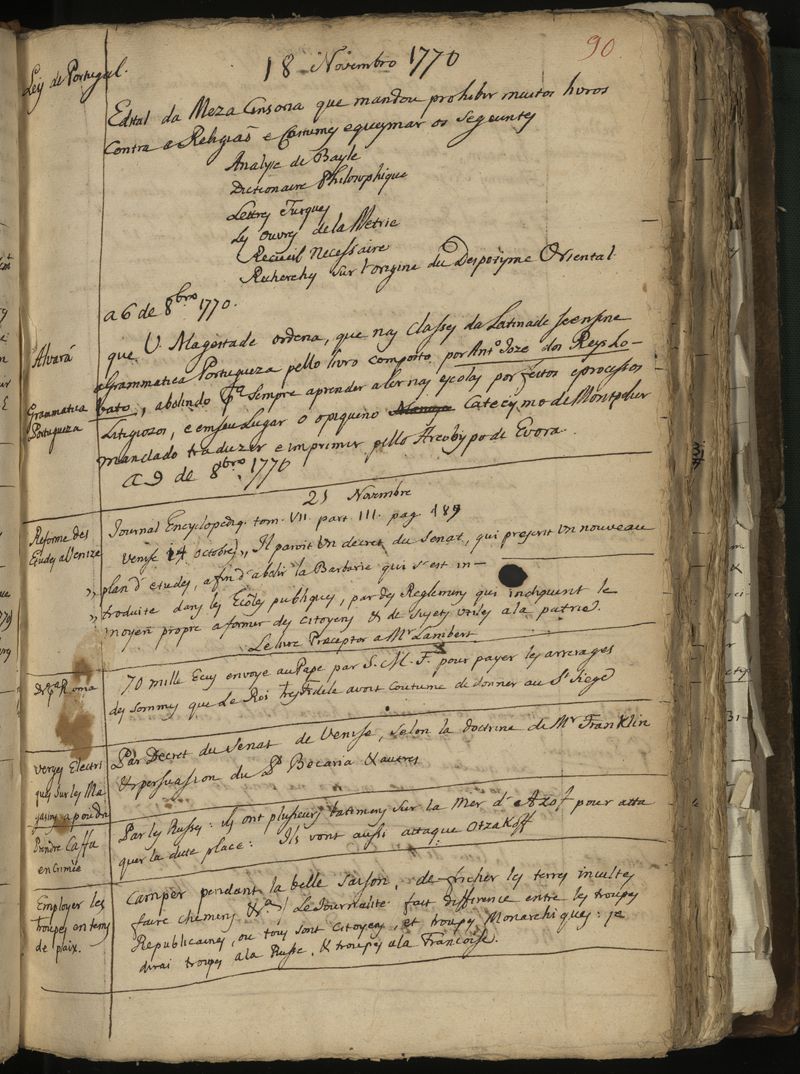 90
18 Novembro 1770
Ley de Portugal.
Edital da Meza Censoria que mandou prohibir muitos livros
contra a Religiaõ e Costumes e queymar os seguintes
Analyse de Bayle
Dictionaire Philosophique
Lettres Turques
Les Ouvres de la Metrie
Recueil Necessaire
Recherches sur l'origine du Despotisme Oriental
a 6 de 8bro 1770.
Alvará
que V. Magestade ordena, que nas classes da Latinade se ensine
Grammatica
Portugueza
a Grammatica Portugueza pello livro composto por Anto. Joze dos Reys Lo-
bato, abolindo pa. sempre aprender a ler nas escolas por feitos e processos
Litigiozos, e em seu Lugar o o piqueno Catecysmo de Montpelier
mandado traduzir e imprimir pello Arcebypo de Evora.
a 9 de 8bro 1770
21 Novembre
Reforme des
Etudes a Venize
Journal Encyclopediq. tom. VII part III. pag 189
Venise 14 octobre,, Il paroit Un decret du Senat, qui prescrit Un nouveau
,, plan d'etudes, afin d'abolir la Barbarie qui s'est in-
,, troduite dans les Ecôles publiques, par des Reglemens qui indiquent le
moyen propre a former des Citoyens & de Sujets utiles a la patrie.
Le livre Preceptor a Mr Lambert
Roma
70 mille Ecus envoye au Pape par S. M. F. pour payer les arrerages
des sommes que le Roi tres Fidele avoit Coutume de donner au St Siege
Verges Electri
ques sur les Ma
gasins a poudre
Par Decret du Senat de Venise, selon la doctrine de Mr Franklin
& persuasion du P. Becaria & autres
Prendre Caffa
en Crimée
Par les Russes: ils ont plusieurs batimens sur la Mer d'Azof pour atta
quer la dite place: Ils vont aussi attaque Otzakoff
Employer les
troupes en tems
de paix.
Camper pendant la belle saison, de fricher les terres incultes
faire chemins &ca. / Le Journaliste fait difference entre les troupes
Republicaines, ou tous sont Citoyens, et troupes Monarchiques: je
dirai troupes a la Russe, & troupes a la Francoise.